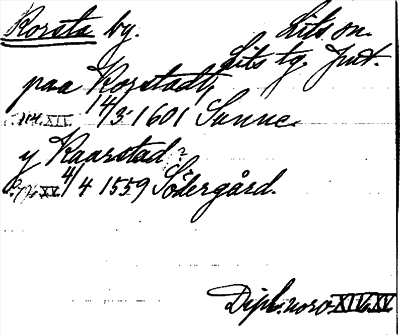 Korsta by. Lits sn.
Lits tg. Jmt.
paa Korstadt,
XIV. 14/3 1601 Sunne.
y Kaarstad?
XV. 4/4 1559 Södergård.
Dipl. norv. XIV. XV